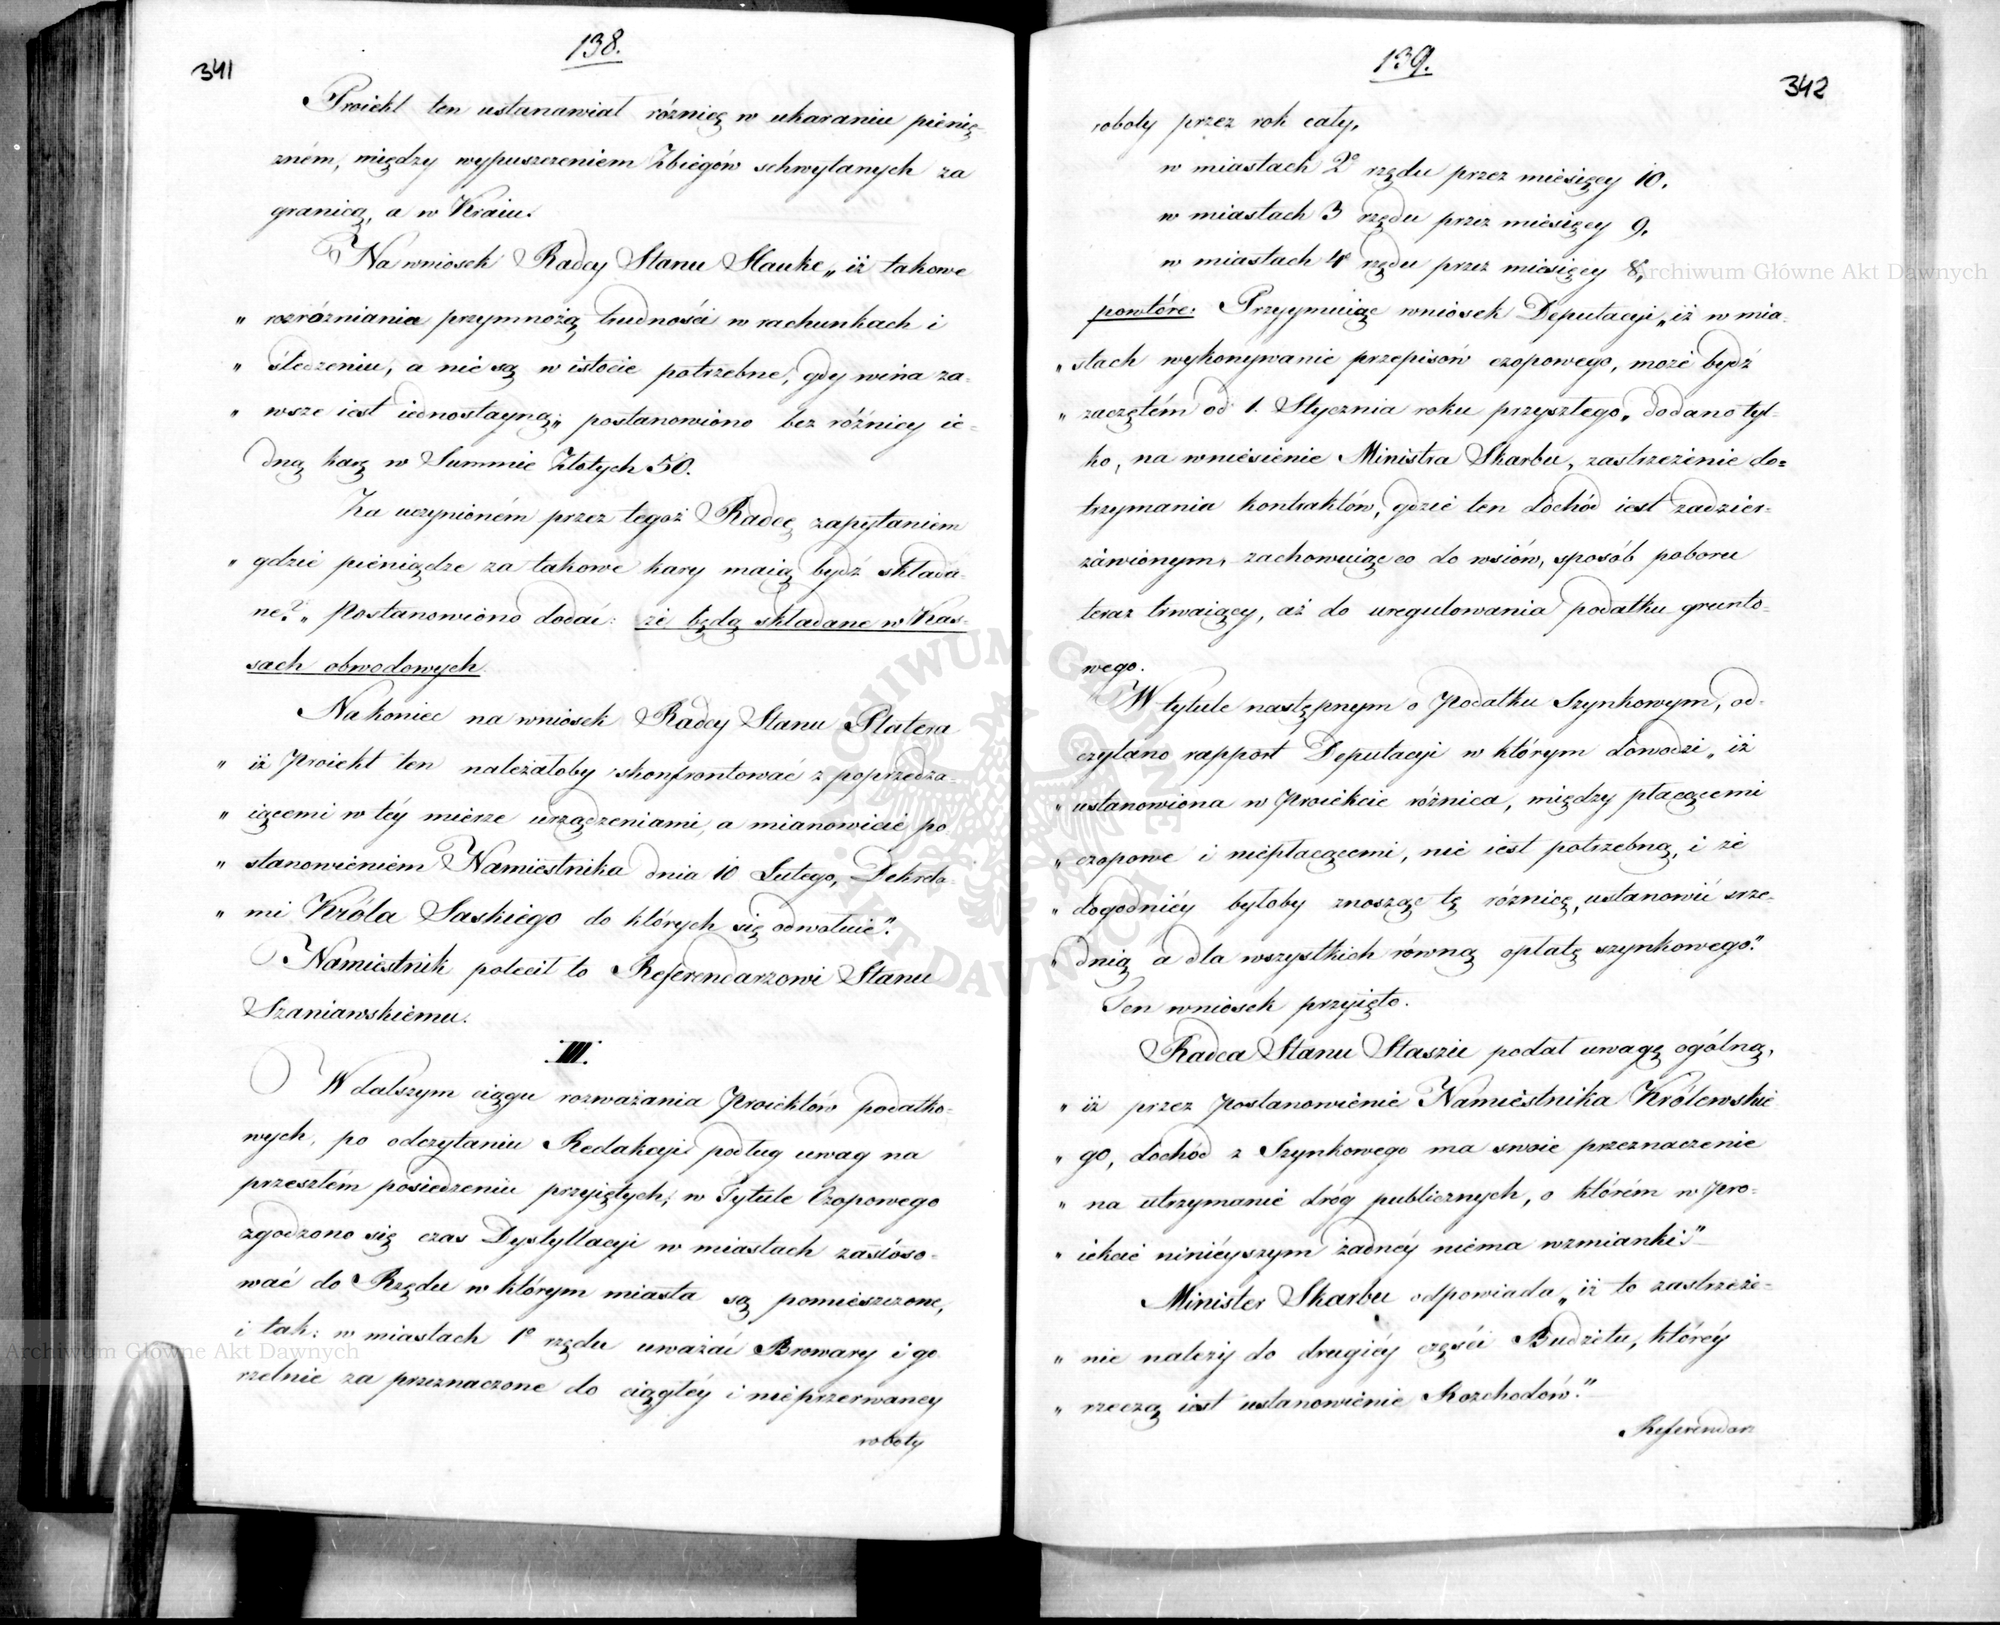 341
138.
Proiekt ten ustanawiał różnicę w ukaraniu pienię-
żném, między wypuszczeniem Zbiegów schwytanych za
granicą, a w Kraiu.
Na wniosek Radcy Stanu Hauke „ iż takowe
„ rozróżniania przymnożą trudności w rachunkach i
„ śledzeniu, a nie są w istocie potrzebne, gdy wina za-
„ wsze iest iednostayną;„ postanowiono bez różnicy ie-
dną karę w Summie Złotych 50.
Za uczynioném przez tegoż Radcę zapytaniem
„ gdzie pieniądze za takowe kary maią bydź składa-
ne?„ Postanowiono dodać: że będą składane w Kas-
sach obwodowych.
Nakoniec na wniosek Radcy Stanu Platera
„ iż Proiekt ten należałoby skonfrontować z poprzedza-
„ iącemi w téy mierze urządzeniami, a mianowicie po
„ stanowieniem Namiestnika dnia 10 Lutego, Dekreta-
„ mi Króla Saskiego do których się odwołuie".
Namiestnik polecił to Referendarzowi Stanu
Szaniawskiemu.
III.
W dalszym ciągu rozważania Proiektów podatko-
wych, po odczytaniu Redakcji podług uwag na
przeszłém posiedzeniu przyiętych; w Tytule Czopowego
zgodzono się czas Dystyllacyi w miastach zastóso-
wać do Rzędu w którym miasta są pomieszczone,
i tak: w miastach 1º rzędu uważać Browary i go
rzelnie za przeznaczone do ciągłéy i nieprzerwaney
roboty
139.
342
roboty przez rok cały,
w miastach 2º rzędu przez miesięcy 10,
w miastach 3 rzędu przez miesięcy 9,
w miastach 4º rzędu przez miesięcy 8,
powtóre: Przyymuiąc wniosek Deputacyi „ iż w mia-
„ stach wykonywanie przepisów czopowego, może bydź
„ zaczętém od 1. Stycznia roku przyszłego„ dodano tyl-
ko, na wniesienie Ministra Skarbu, zastrzeżenie do=
trzymania kontraktów, gdzie ten dochód iest zadzier-
żawionym, zachowuiąc co do wsiów, sposób poboru
teraz trwaiący, aż do uregulowania podatku grunto-
wego.
W tytule następnym o Podatku Szynkowym, od-
czytano rapport Deputacyi w którym dowodzi „ iż
„ ustanowiona w Proiekcie różnica, między płacącemi
„ czopowe i niepłacącemi, nie iest potrzebną, i że
„ dogodniéy byłoby znosząc tę różnicę, ustanowić śrze-
„ dnią a dla wszystkich równą opłatę szynkowego."
Ten wniosek przyięto.
Radca Stanu Staszic podał uwagę ogólną,
„ iż przez Postanowienie Namiestnika Królewskie
„ go, dochód z Szynkowego ma swoie przeznaczenie
„ na utrzymanie dróg publicznych, o którém w Pro-
„ iekcie ninieyszym żadnéy niema wzmianki."
Minister Skarbu odpowiada „ iż to zastrzeże-
„ nie należy do drugiéy części Budżetu, któréy
„ rzeczą iest ustanowienie Rozchodów."
Referendarz
Archiwum Główne Akt Dawnych
Archiwum Główne Akt Dawnych
ARCHIWUM GŁÓWNE AKT DAWNYCH